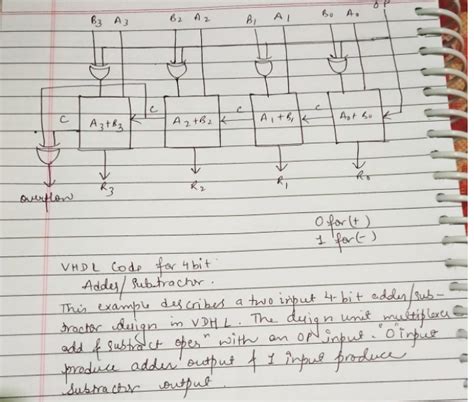 B3 A3 B2 A2 B1 A1 B0 A0 OP
C A3+B3 C A2+B2 C A1+B1 C A0+B0
overflow R3 R2 R1 R0
0 for (+)
1 for (-)
VHDL Code for 4 bit
Adder/Subtractor.
This example describes a two input 4-bit adder/sub-
tractor design in VDHL. The design unit multiplexes
add & subtract oper" with an OP input. "0" input
produce adder output & 1 input produce
subtractor output.